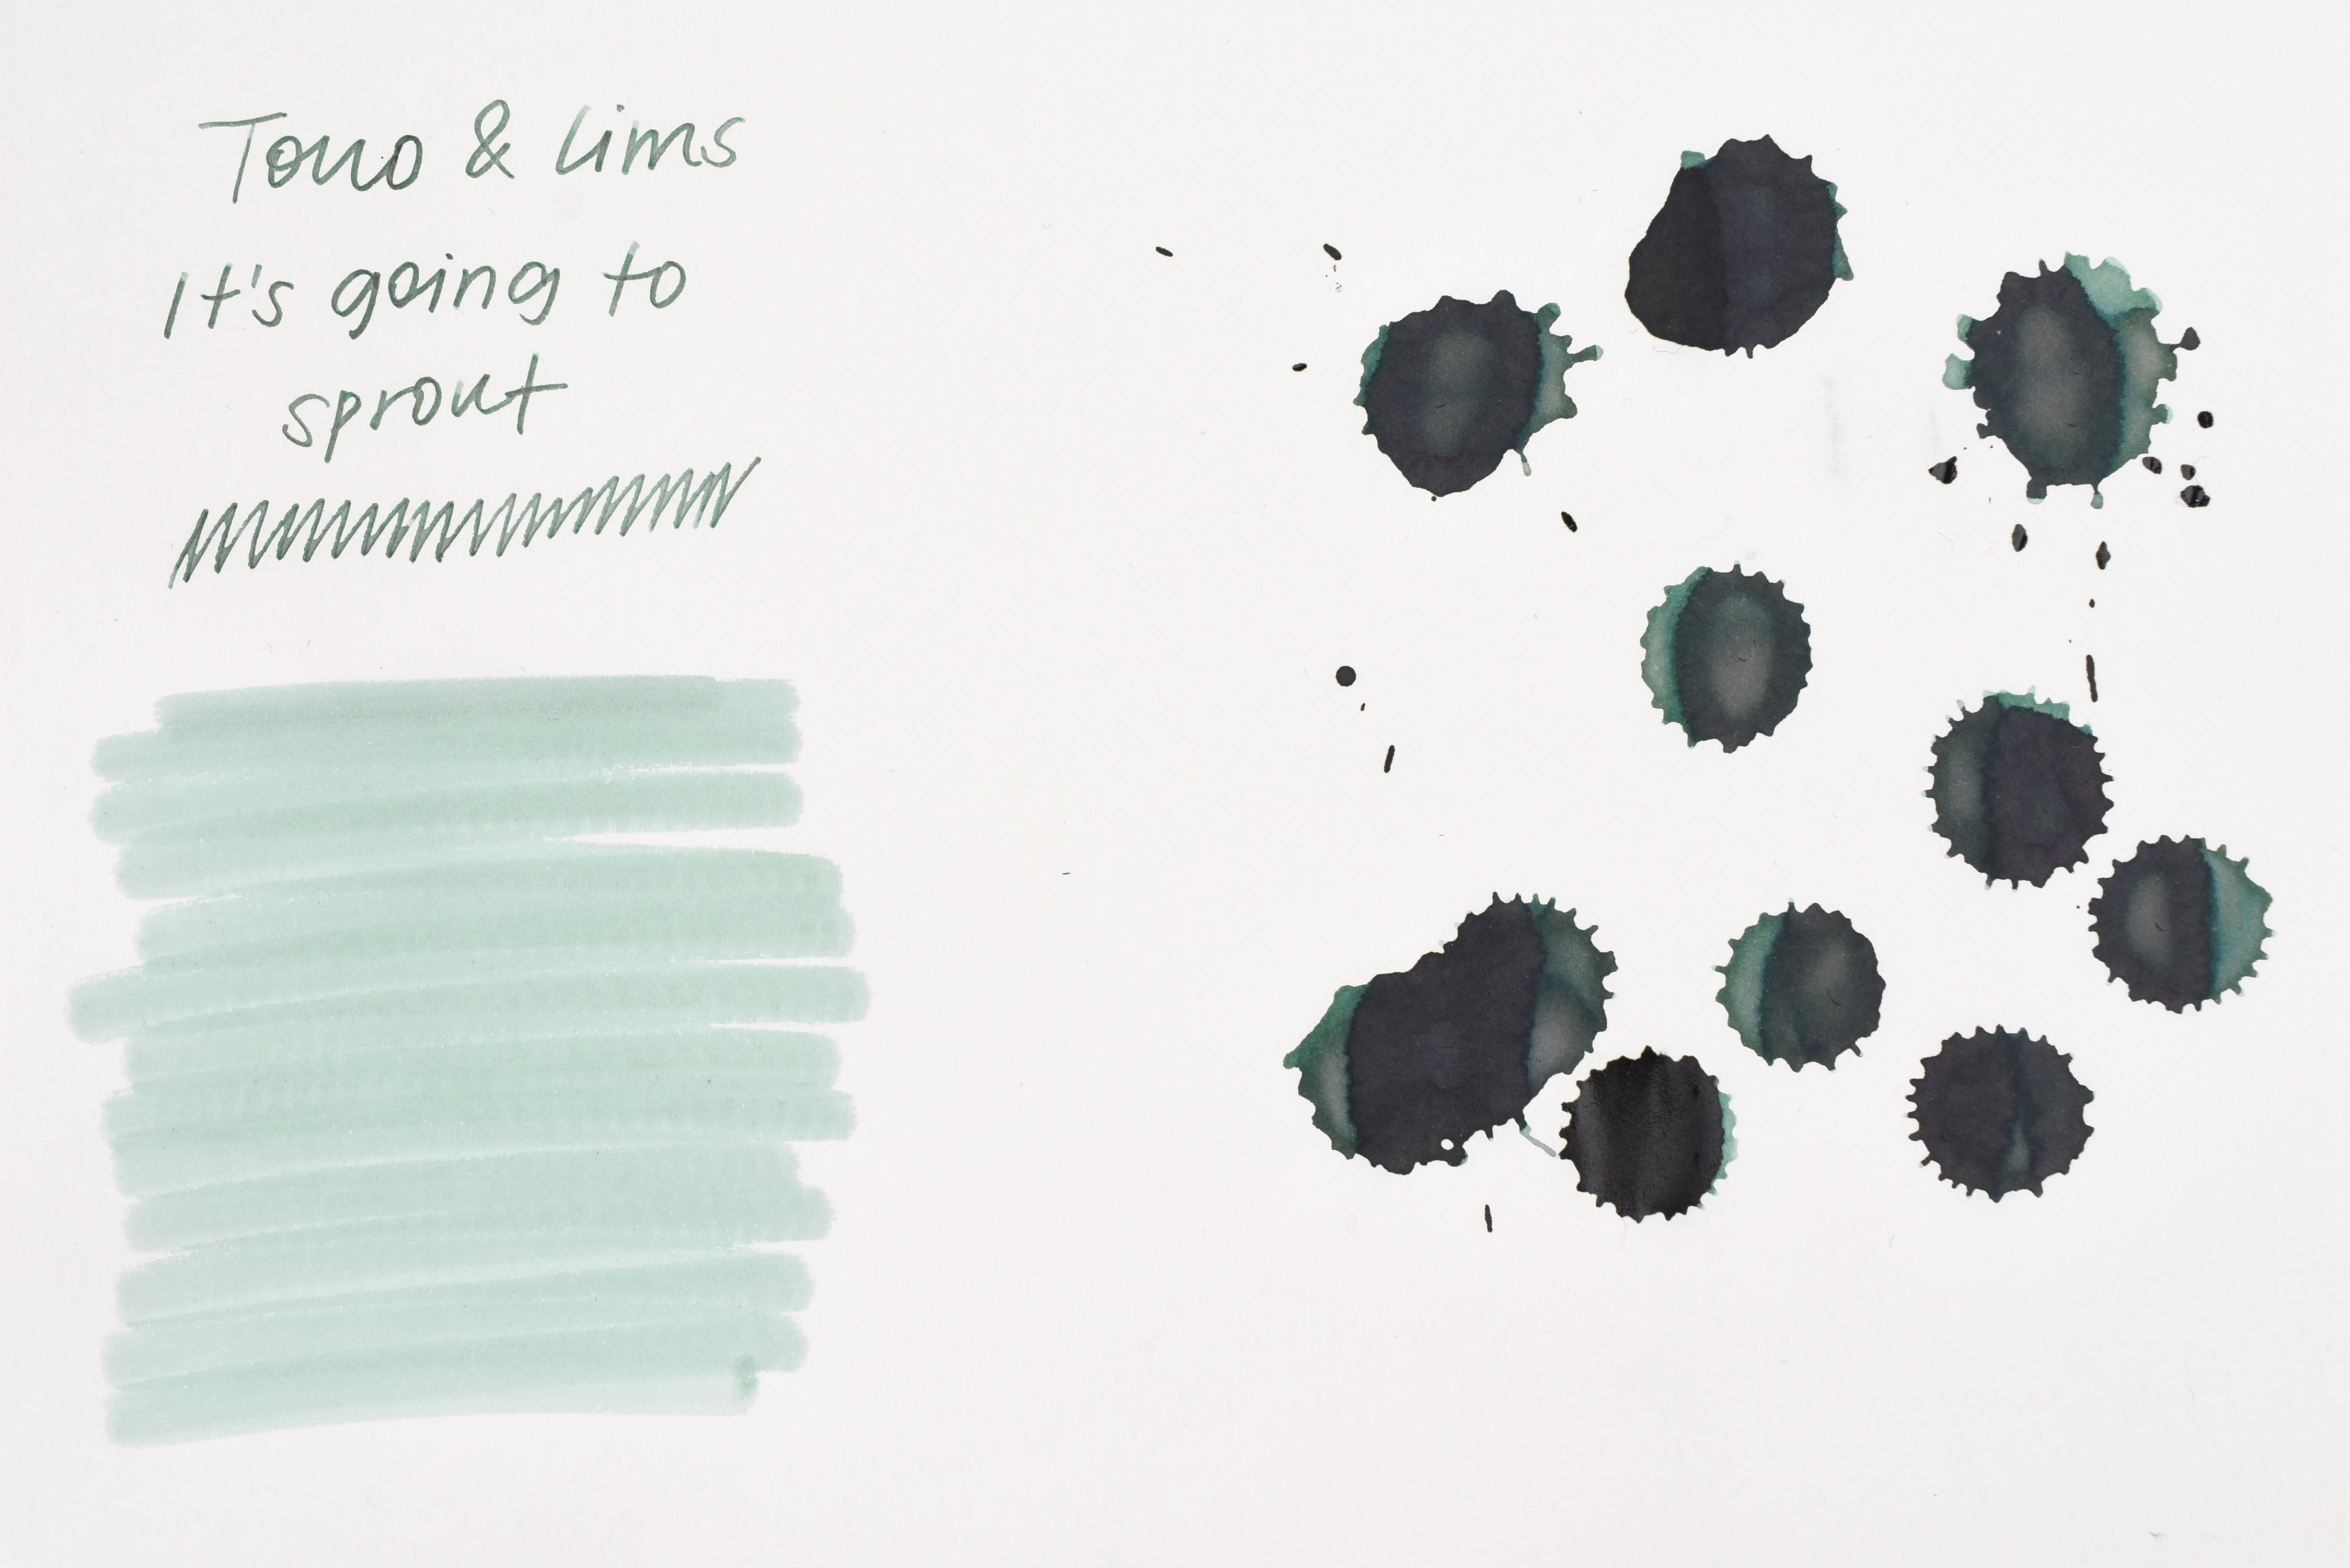 Tono & Lims
It's going to
sprout